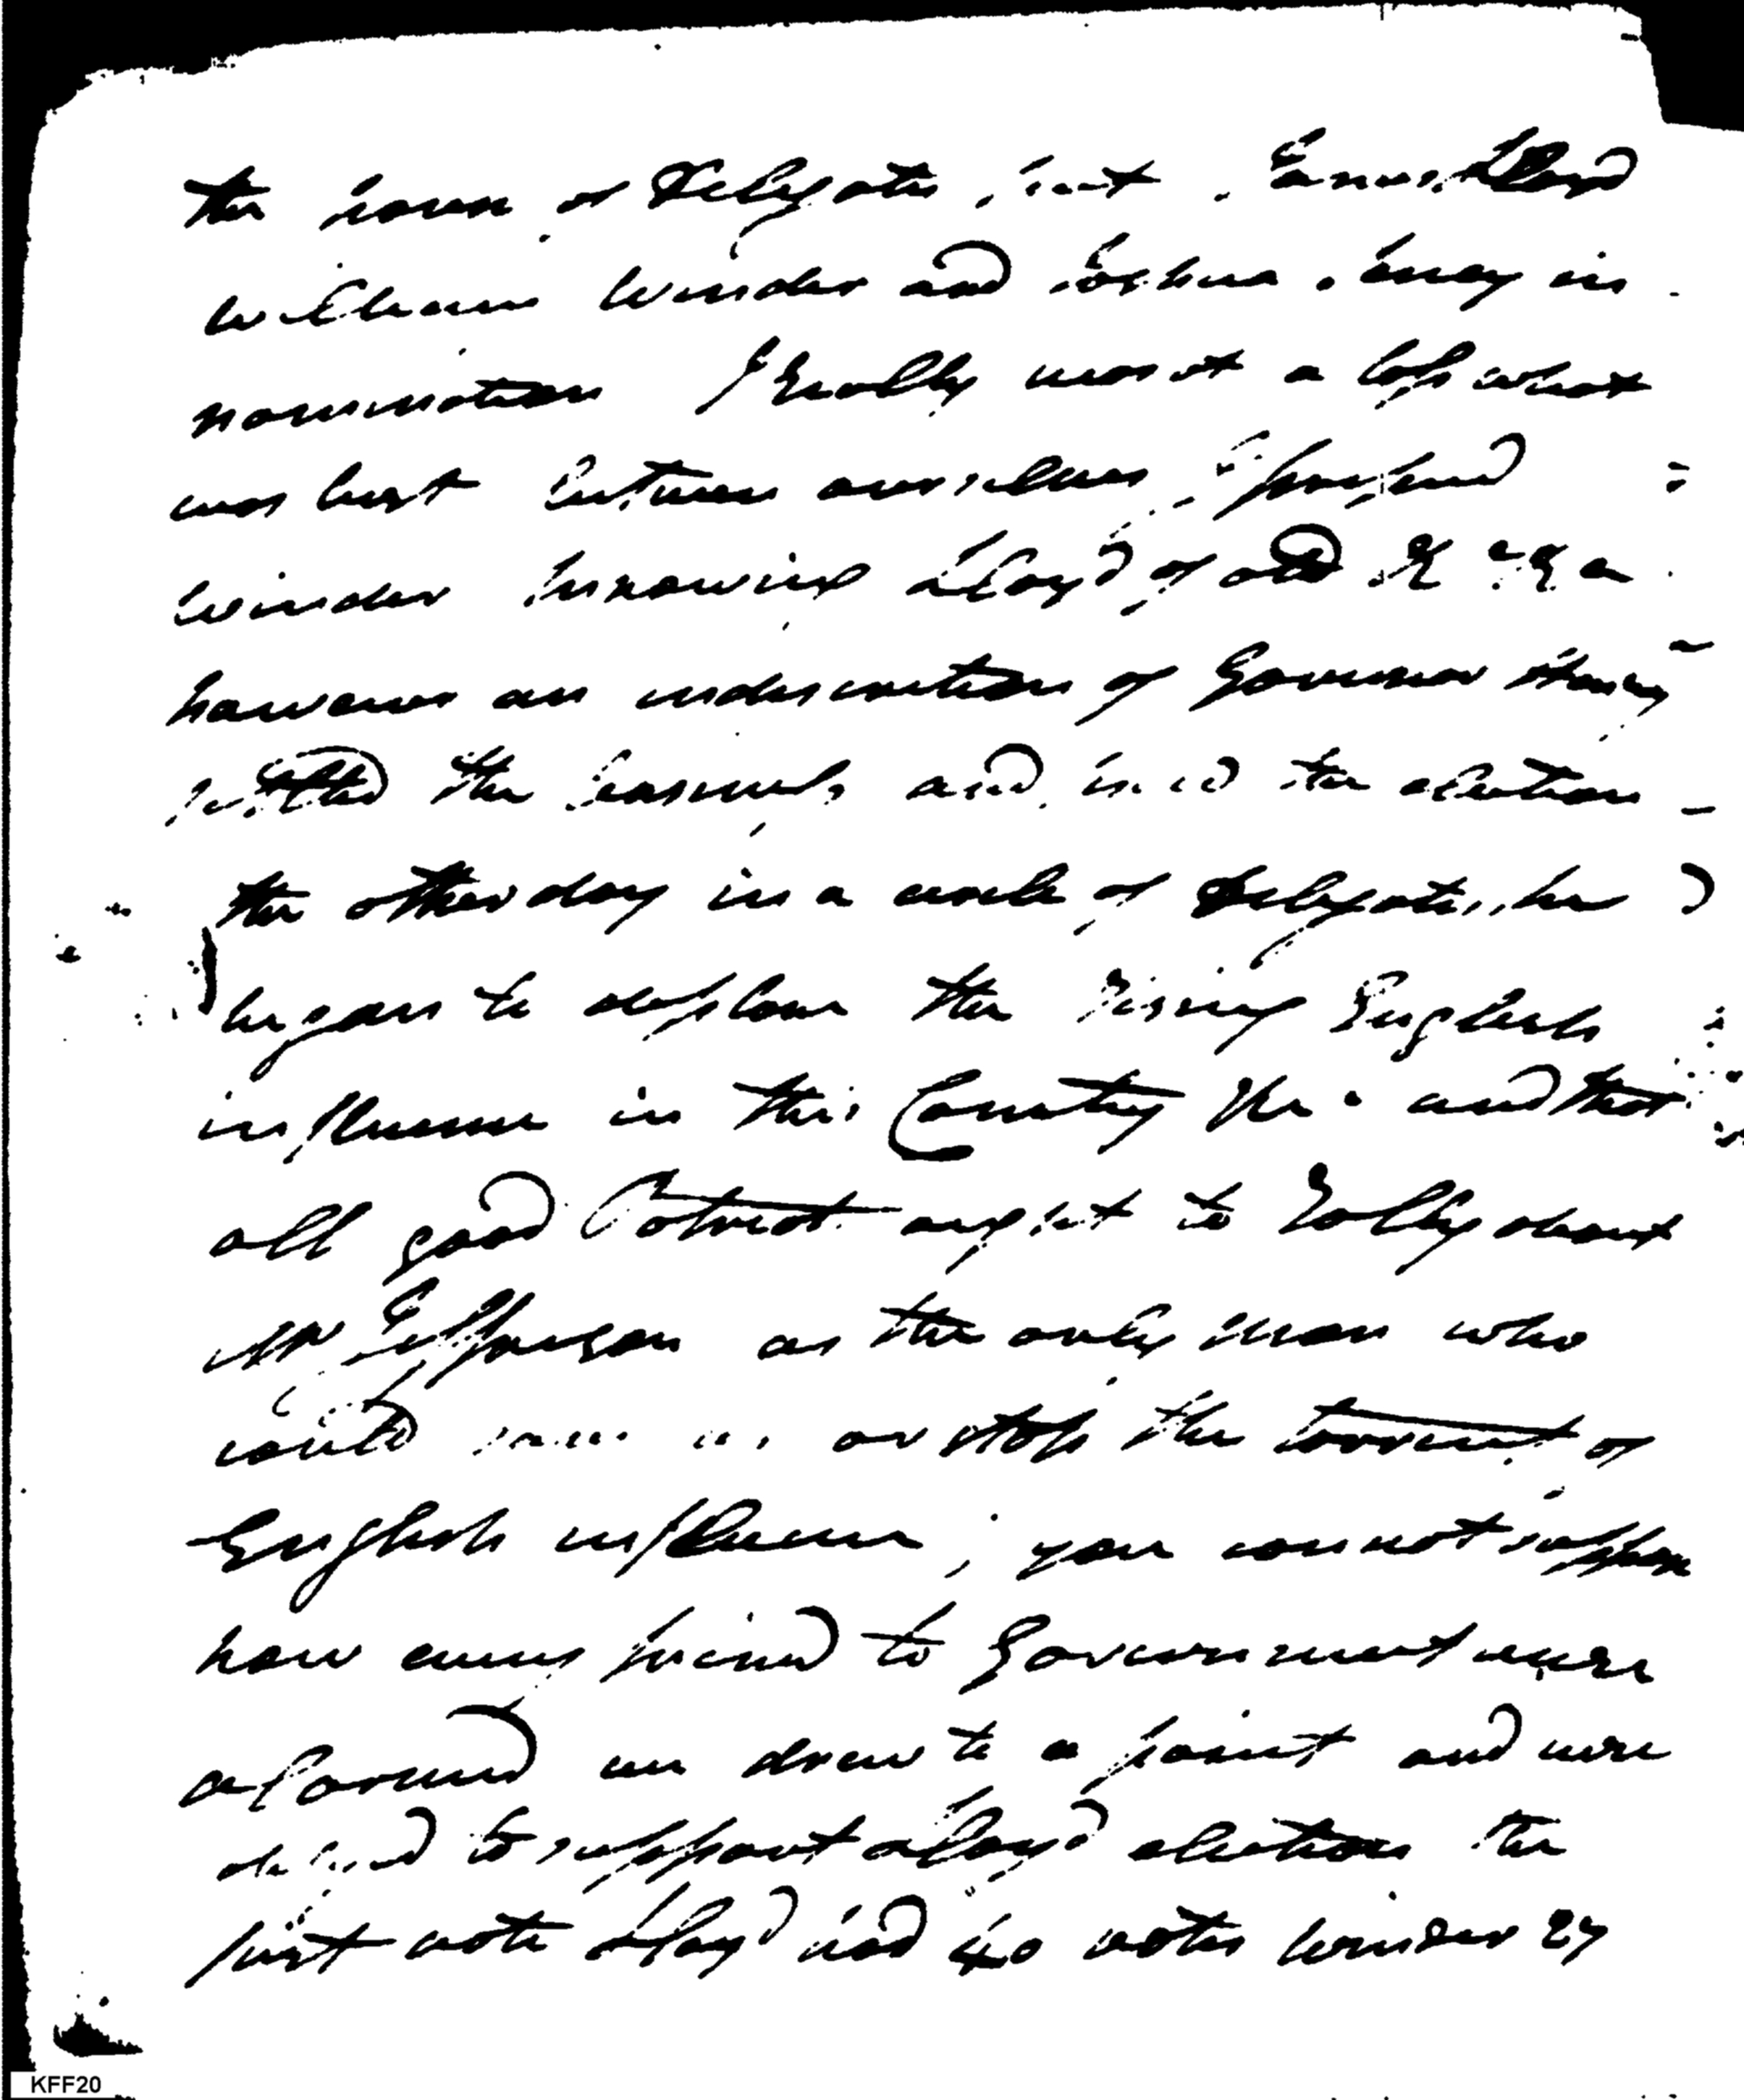 the house of Delegates, put James Lloyd
William Winder and Joshua Seney in
nomination I really was at a loss what
was best between ourselves I prefered
Winder knowing Lloyd of old
however an indiscretion of Governor Henry
settled the business and fixed the election
the other day in a circle of Delegates, he
began to deplore the rising English
influence in this Country &c. and that
all good Patriots ought to Rally about
Mr Jefferson as the only man who
could save us or stop the torrent of
English influence; you cannot suppose
how every friend to Government was
alarmed we drew to a point and were
obliged to support Lloyds election the
first vote Lloyd had 40 votes Winder 27
KFF20